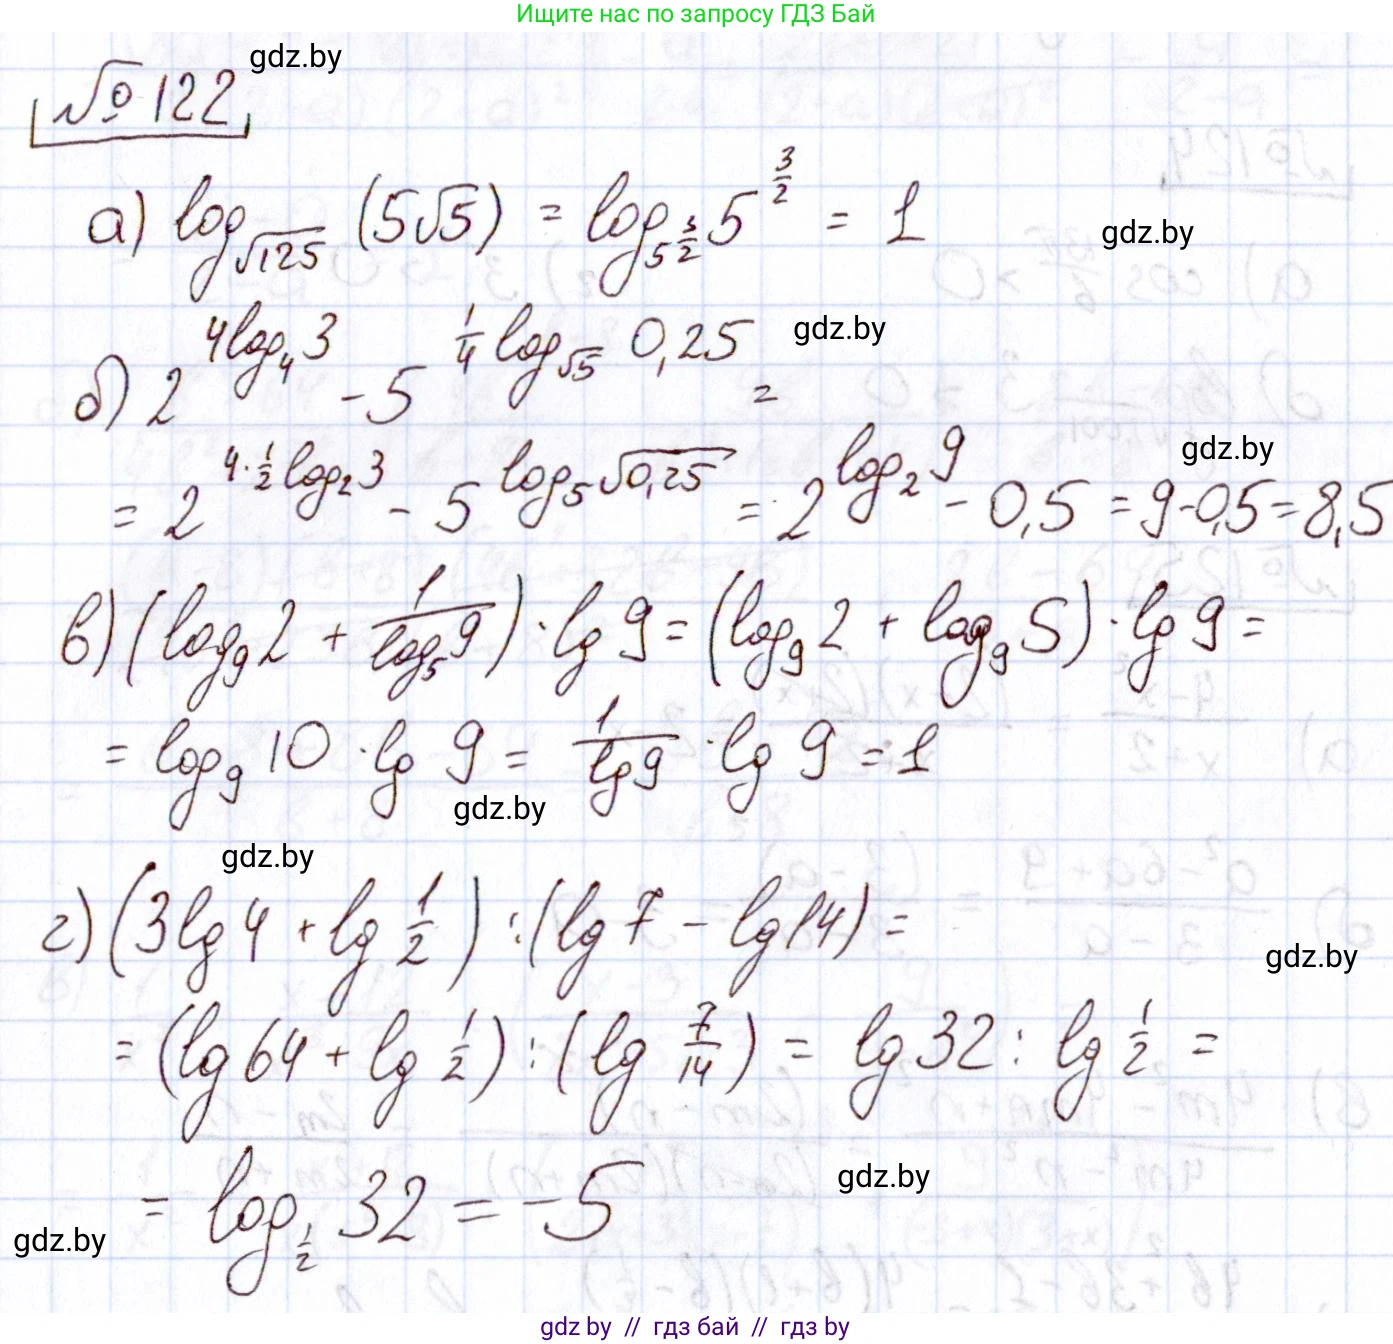 Ищите нас по запросу ГДЗ Бай
gdz.by
№ 122
а) log_{√125} (5√5) = log_{5^{3/2}} 5^{3/2} = 1
gdz.by
б) 2^{4log_4 3} - 5^{1/4 log_{√5} 0,25} =
gdz.by
= 2^{4·1/2 log_2 3} - 5^{log_5 √0,25} = 2^{log_2 9} - 0,5 = 9-0,5 = 8,5
gdz.by
в) (log_9 2 + 1/log_5 9) · lg 9 = (log_9 2 + log_9 5) · lg 9 =
= log_9 10 · lg 9 = 1/lg 9 · lg 9 = 1
gdz.by
gdz.by
г) (3lg 4 + lg 1/2) : (lg 7 - lg 14) =
gdz.by
= (lg 64 + lg 1/2) : (lg 7/14) = lg 32 : lg 1/2 =
= log_{1/2} 32 = -5
gdz.by
gdz.by
gdz.by // гдз бай // гдз by